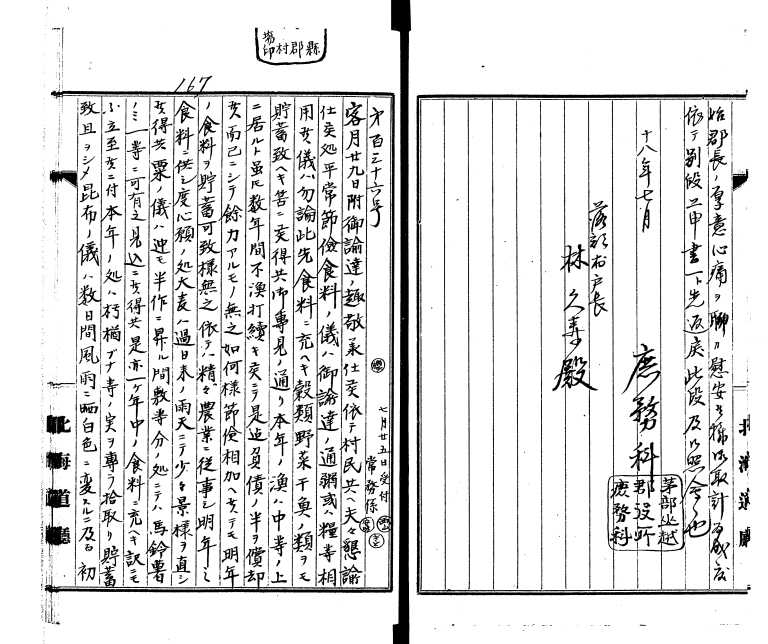 始郡長ノ厚意心痛ヲ聊カ慰安
依テ別段上申書一ト先返戻此段及照会也
十八年七月
落部村戸長
林 殿
庶務科
茅部山越
郡役所
庶務科
北海道廳
縣郡村
167
百三十六号
七月廿五日受付
常務係
客月廿九日附御諭達ノ趣敬承仕候依テ村民共ヘ夫々懇諭
仕候処平常節儉食料ノ儀ハ御諭達ノ通粥或ハ糧等相
用候儀ハ勿論此先食料ニ充ヘキ穀類野菜干魚ノ類ヲモ
貯蓄致ヘキ筈ニ候得共御専見ノ通リ本年ノ漁ハ中等ノ上
ニ居ルト雖ドモ数年間不漁打續キ候ニテ是迠負債ノ半ヲ償却
候而已ニシテ餘力アルモノ無之如何様節儉相加ヘ候テモ明年
ノ食料ヲ貯蓄可致様無之依テハ精々農業ニ従事シ明年ノ
食料ニ供シ度心願ノ処大麦ハ過日来ノ雨天ニテ少々景様ヲ直シ
候得共粟ノ儀ハ迚モ半作ニ昇ル間敷等分ノ処ニテハ馬鈴薯
ノミ一等ニ可有之見込ニ候得共是亦一ケ年中ノ食料ニ充ヘキ訳ニモ
立至候ニ付本年ノ処ハ朽楢ブナ等ノ実ヲ専ラ拾取リ貯蓄
致且ヲシメ昆布ノ儀ハ数日間風雨ニ晒白色ニ変スルニ及ヒ初
北海道廳